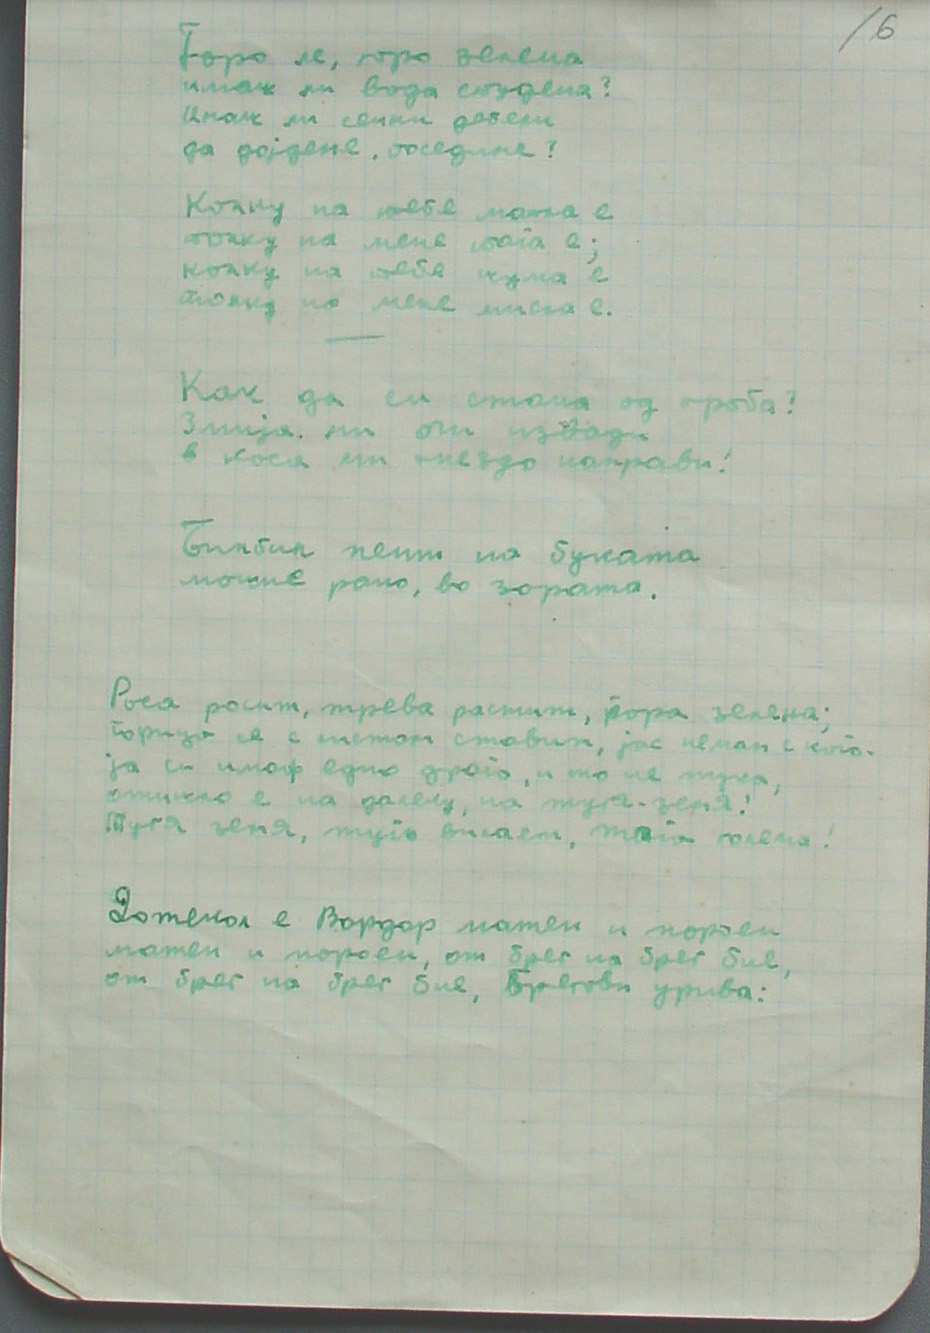 16
Горо ле, горо зелена
имаш ли вода студена?
Имаш ли сенки дебели
да дојдеме, поседиме?
Колку на тебе магла е
толку на мене тога е;
колку на тебе шума е
толку на мене мисла е.
Как да си стана од гроба?
Змија ми очи извади
в коса ми гнездо направи!
Билбил пеит на буката
мошне рано, во зората.
Роса росит, трева растит, гора зелена;
Горица се с листот ставит, јас немам с кого.
ја си имаф едно драго, и то не тука,
отишло е на далеку, на туѓа земја!
Туѓа земја, туѓо вилает, тога голема!
Дотекол е Вардар матен и пороен
матен и пороен, от брег на брег бие,
от брег на брег бие, брегови урива: